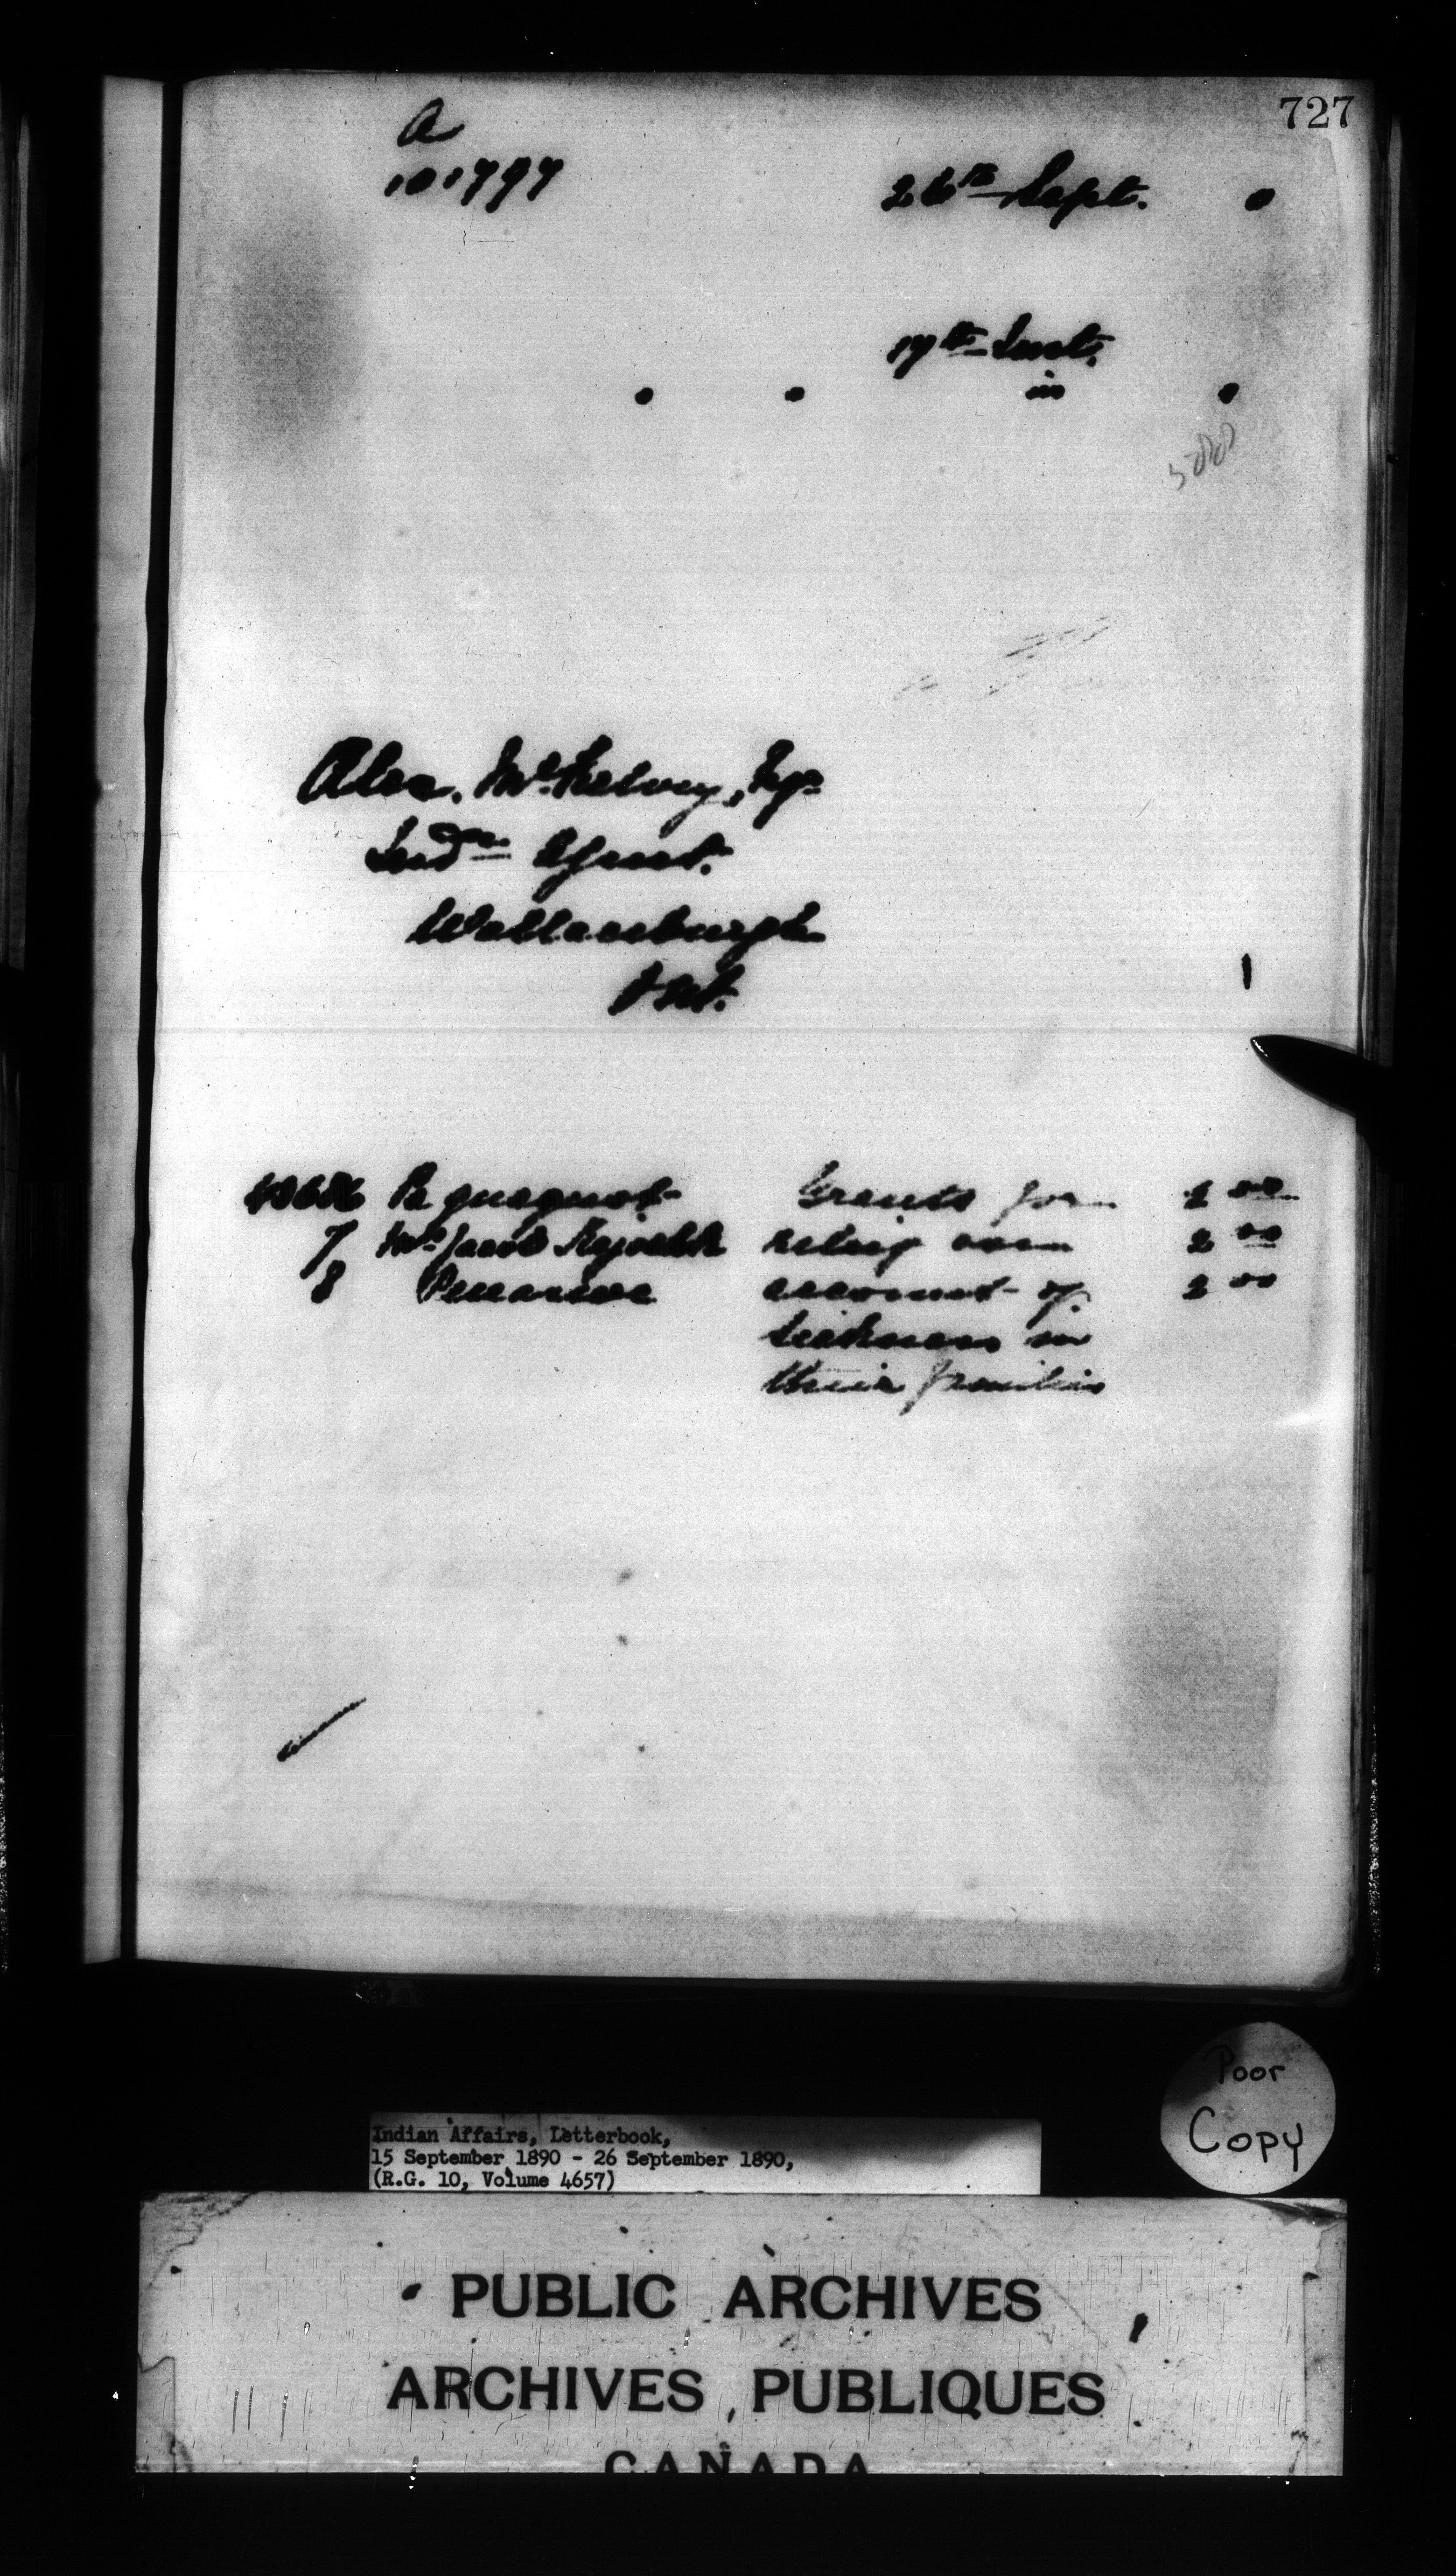 727
A
101797
26th Sept. 0
17th Inst.
in
500
Alex. McKelvey, Esq.
Indn Agent.
Wallaceburgh
Ont.
1
Grants for 2 00
7 Mrs Jacob relief on 2 00
8 account of 2 00
sickness in
their families
Poor
Copy
Indian Affairs, Letterbook,
15 September 1890 - 26 September 1890,
(R.G. 10, Volume 4657)
PUBLIC ARCHIVES
ARCHIVES PUBLIQUES
CANADA